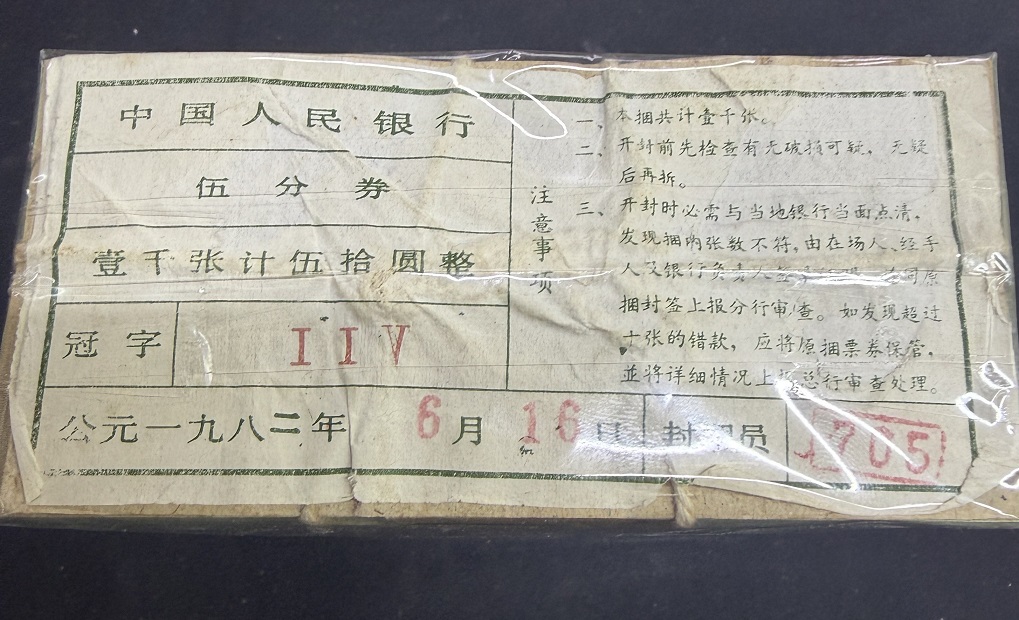 中国人民银行
伍分券
壹千张计伍拾圆整
冠字
IIV
公元一九八二年 6月 16日
封 员
705
注意事项
一、本捆共计壹千张。
二、开封前先检查有无破损可疑，无疑
后再拆。
三、开封时必需与当地银行当面点清，
发现捆内张数不符，由在场人、经手
人及银行负责人签 同原
捆封签上报分行审查。如发现超过
十张的错款，应将原捆票券保管，
並将详细情况上报总行审查处理。